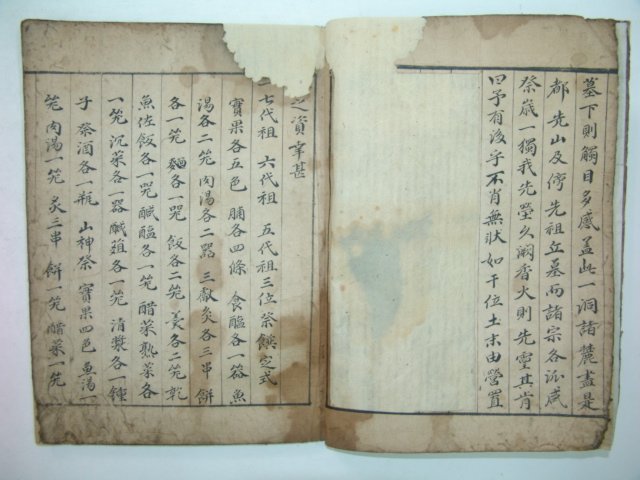 墓下則觸目多感盖此一洞諸麓盡是
都先山及傍先祖立墓而諸宗各派咸
祭歲一獨我先塋久闕香火則先靈其肯
曰予有後乎不肖無狀如干位土末由營置
之資幸甚
七代祖 六代祖 五代祖三位祭饌定式
實果各五色 脯各四條 食醢各一器魚
湯各二笎 肉湯各二器 三獻炙各三串 餠
各一笎 麵各一器 飯各二笎 羹各二笎 乾
魚佐飯各一器 醎醢各一笎 醋菜熟菜各
一笎 沉菜各一器 醎葅各一笎 清漿各一鍾
子 祭酒各一瓶 山神祭 實果四色 魚湯一
笎 肉湯一笎 炙三串 餠一笎 醋菜一笎